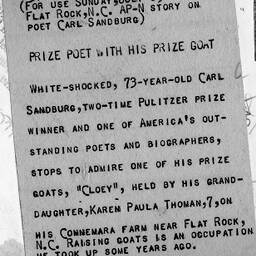 (FOR USE SUNDAY,
FLAT ROCK, N.C. AP-N STORY ON
POET CARL SANDBURG)
PRIZE POET WITH HIS PRIZE GOAT
WHITE-SHOCKED, 73-YEAR-OLD CARL
SANDBURG, TWO-TIME PULITZER PRIZE
WINNER AND ONE OF AMERICA'S OUT-
STANDING POETS AND BIOGRAPHERS,
STOPS TO ADMIRE ONE OF HIS PRIZE
GOATS, "CLOEY", HELD BY HIS GRAND-
DAUGHTER, KAREN PAULA THOMAN, 7, ON
HIS CONNEMARA FARM NEAR FLAT ROCK,
N.C. RAISING GOATS IS AN OCCUPATION
HE TOOK UP SOME YEARS AGO.